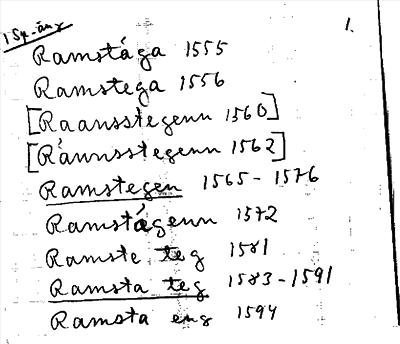 1 Sp.-äng
1.
Ramstága 1555
Ramstega 1556
[Raansstegenn 1560]
[Ránnsstegenn 1562]
Ramstegen 1565-1576
Ramstágenn 1572
Ramste teg 1581
Ramsta teg 1583-1591
Ramsta eng 1594